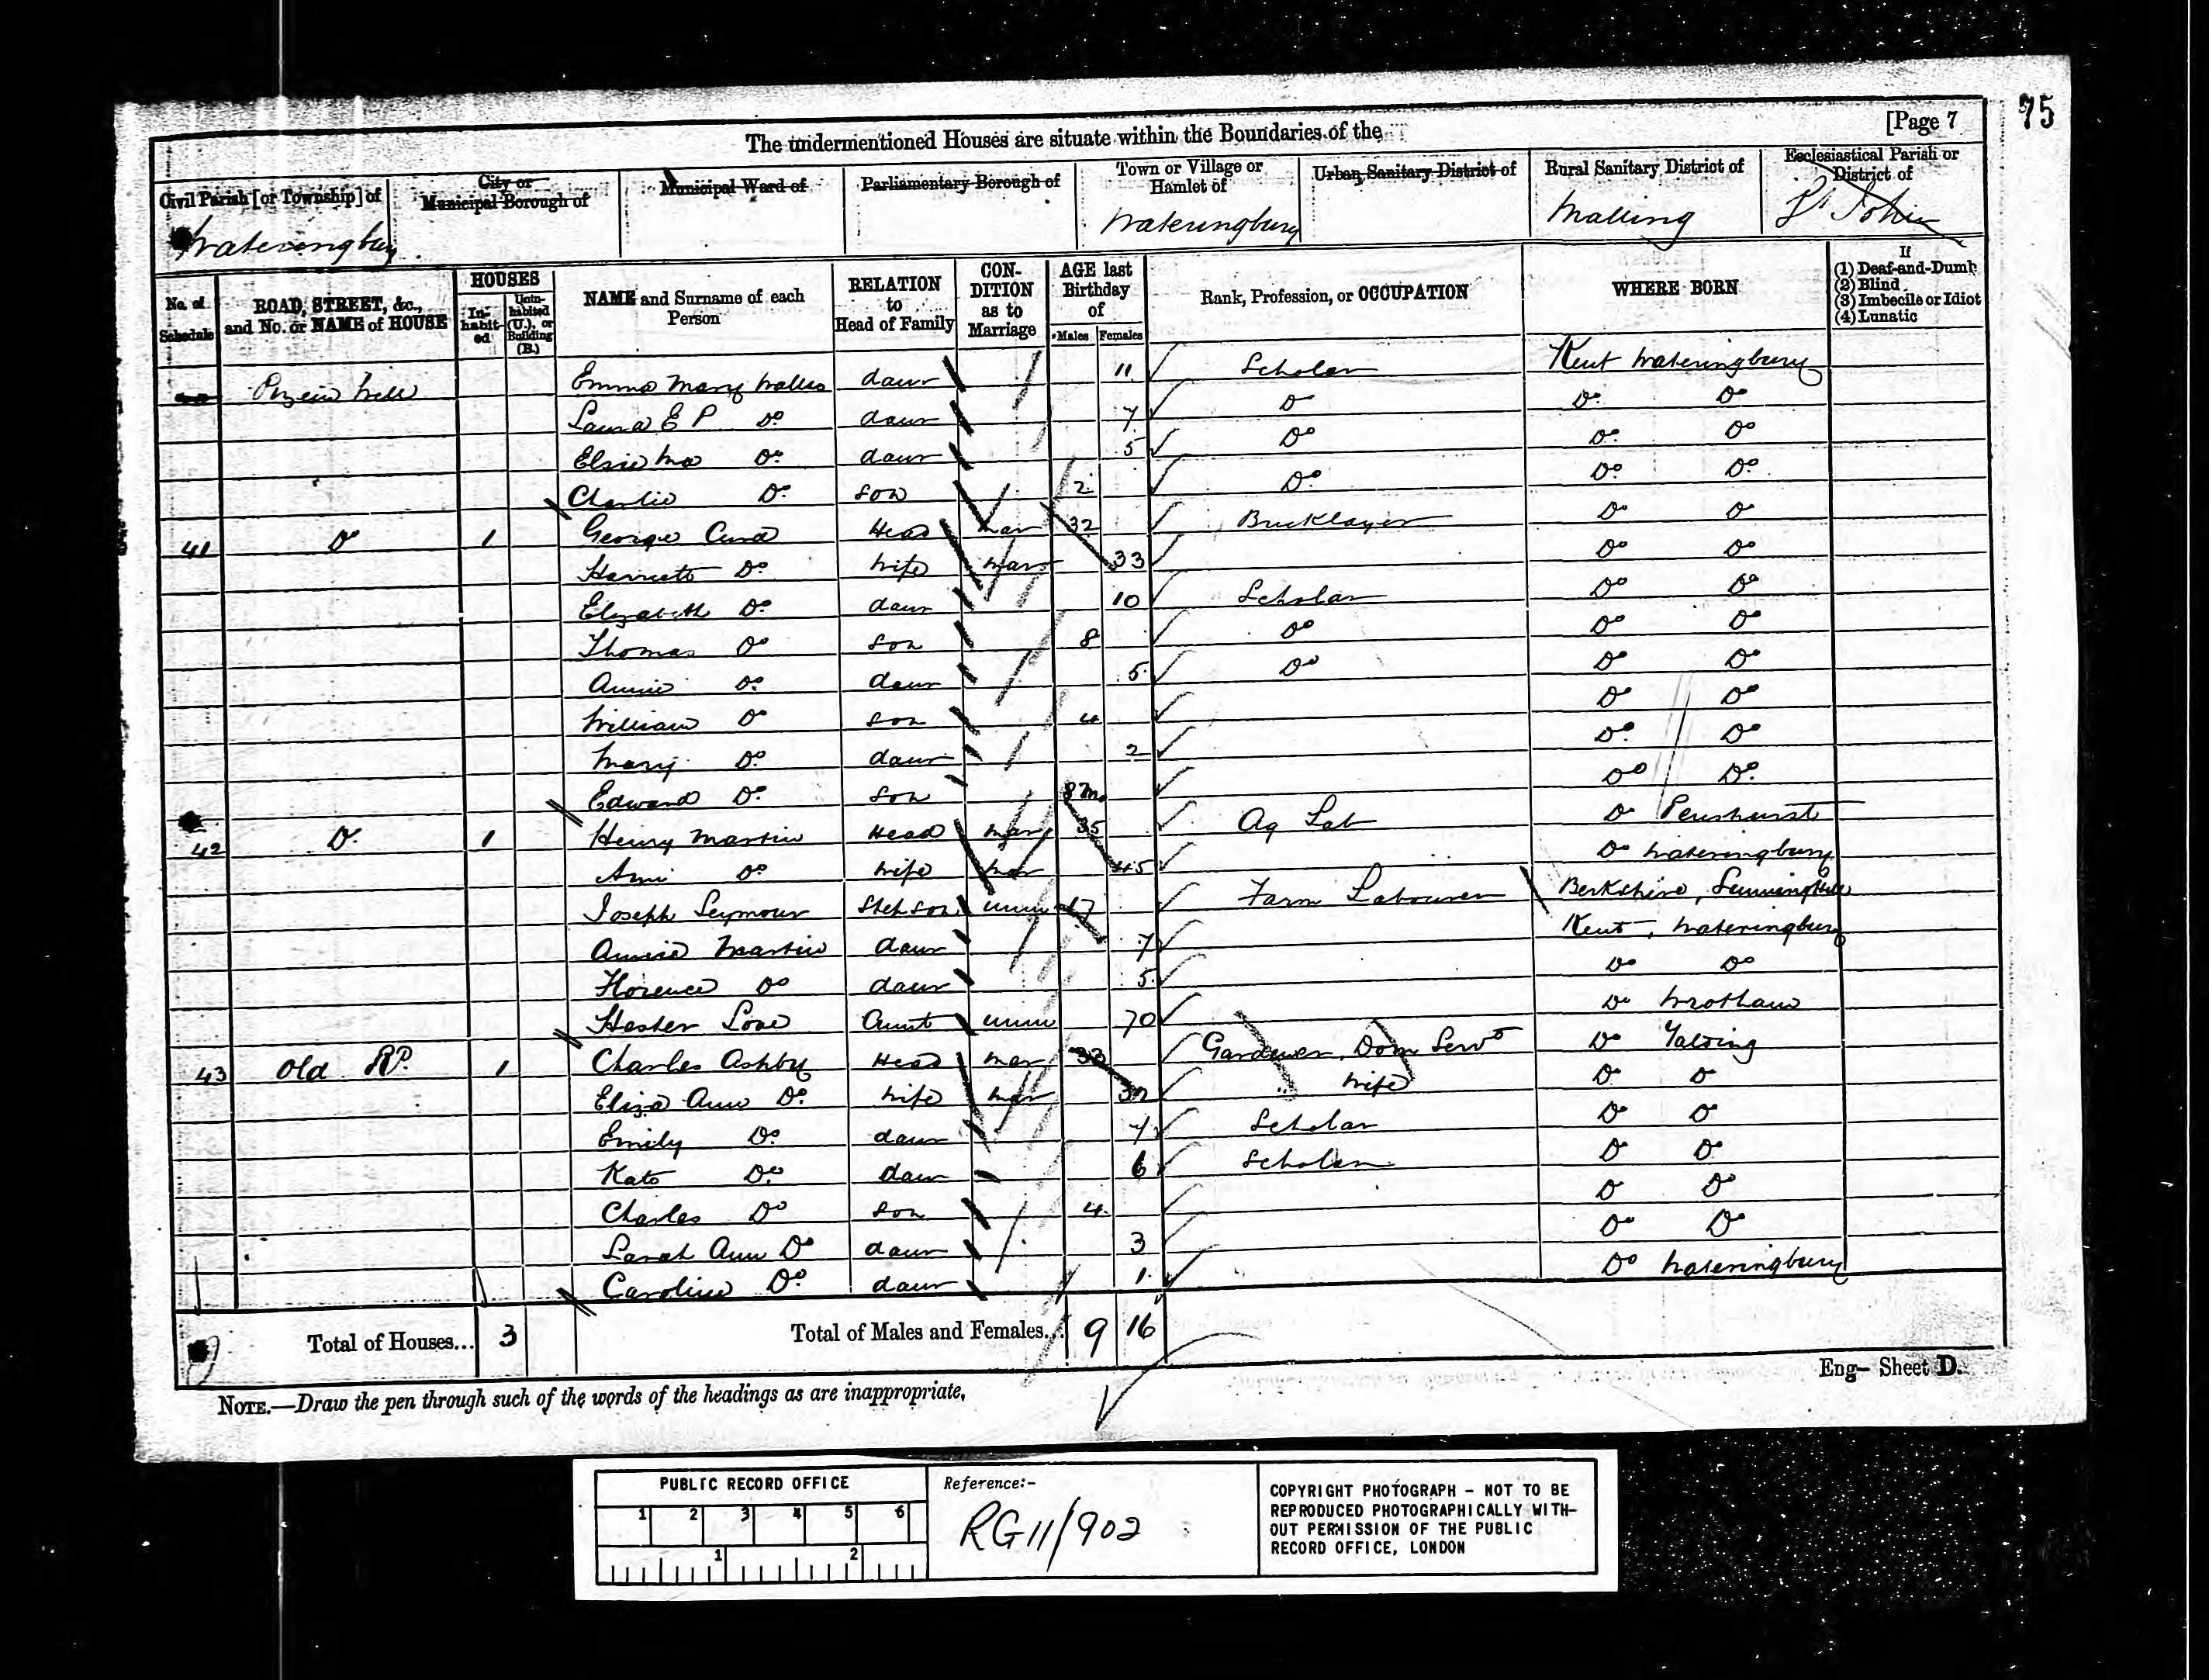 75
The undermentioned Houses are situate within the Boundaries of the [Page 7
Civil Parish [or Township] of City or Municipal Borough of Municipal Ward of Parliamentary Borough of Town or Village or Hamlet of Urban Sanitary District of Rural Sanitary District of Ecclesiastical Parish or District of
Wateringbury Wateringbury Malling St John
No. of Schedule ROAD, STREET, &c., and No. or NAME of HOUSE HOUSES Inhabited Uninhabited (U.), or Building (B.) NAME and Surname of each Person RELATION to Head of Family CONDITION as to Marriage AGE last Birthday of Males Females Rank, Profession, or OCCUPATION WHERE BORN If (1) Deaf-and-Dumb (2) Blind (3) Imbecile or Idiot (4) Lunatic
Hill Emma Mary daur 11 Scholar Kent Wateringbury
Laura E P Do daur 7 Do Do Do
Elsie Do daur 5 Do Do Do
Charlie Do son 2 Do Do Do
41 Do 1 George Head mar 32 Bricklayer Do Do
Harriett Do Wife mar 33 Do Do
Elizabeth Do daur 10 Scholar Do Do
Thomas Do son 8 Do Do Do
Annie Do daur 5 Do Do Do
William Do son 4 Do Do
Mary Do daur 2 Do Do
Edward Do son 8 mo Do Do
42 Do 1 Henry Martin Head mar 35 Ag Lab Do Penshurst
Do Wife mar 45 Do Wateringbury
Joseph Seymour Step Son unm 17 Farm Labourer Berkshire, Sunninghill
Annie Martin daur 7 Kent, Wateringbury
Florence Do daur 5 Do Do
Hester Love Aunt unm 70 Do Wrotham
43 Old Rd 1 Charles Ashby Head mar 33 Gardener Dom Servt Do Yalding
Eliza Ann Do Wife mar 32 " Wife Do Do
Emily Do daur 7 Scholar Do Do
Kate Do daur 6 Scholar Do Do
Charles Do son 4 Do Do
Sarah Ann Do daur 3 Do Do
Caroline Do daur 1 Do Wateringbury
Total of Houses... 3 Total of Males and Females... 9 16
Eng- Sheet D.
NOTE.—Draw the pen through such of the words of the headings as are inappropriate.
PUBLIC RECORD OFFICE
1 2 3 4 5 6
1 2
Reference:-
RG 11/902
COPYRIGHT PHOTOGRAPH - NOT TO BE
REPRODUCED PHOTOGRAPHICALLY WITH-
OUT PERMISSION OF THE PUBLIC
RECORD OFFICE, LONDON